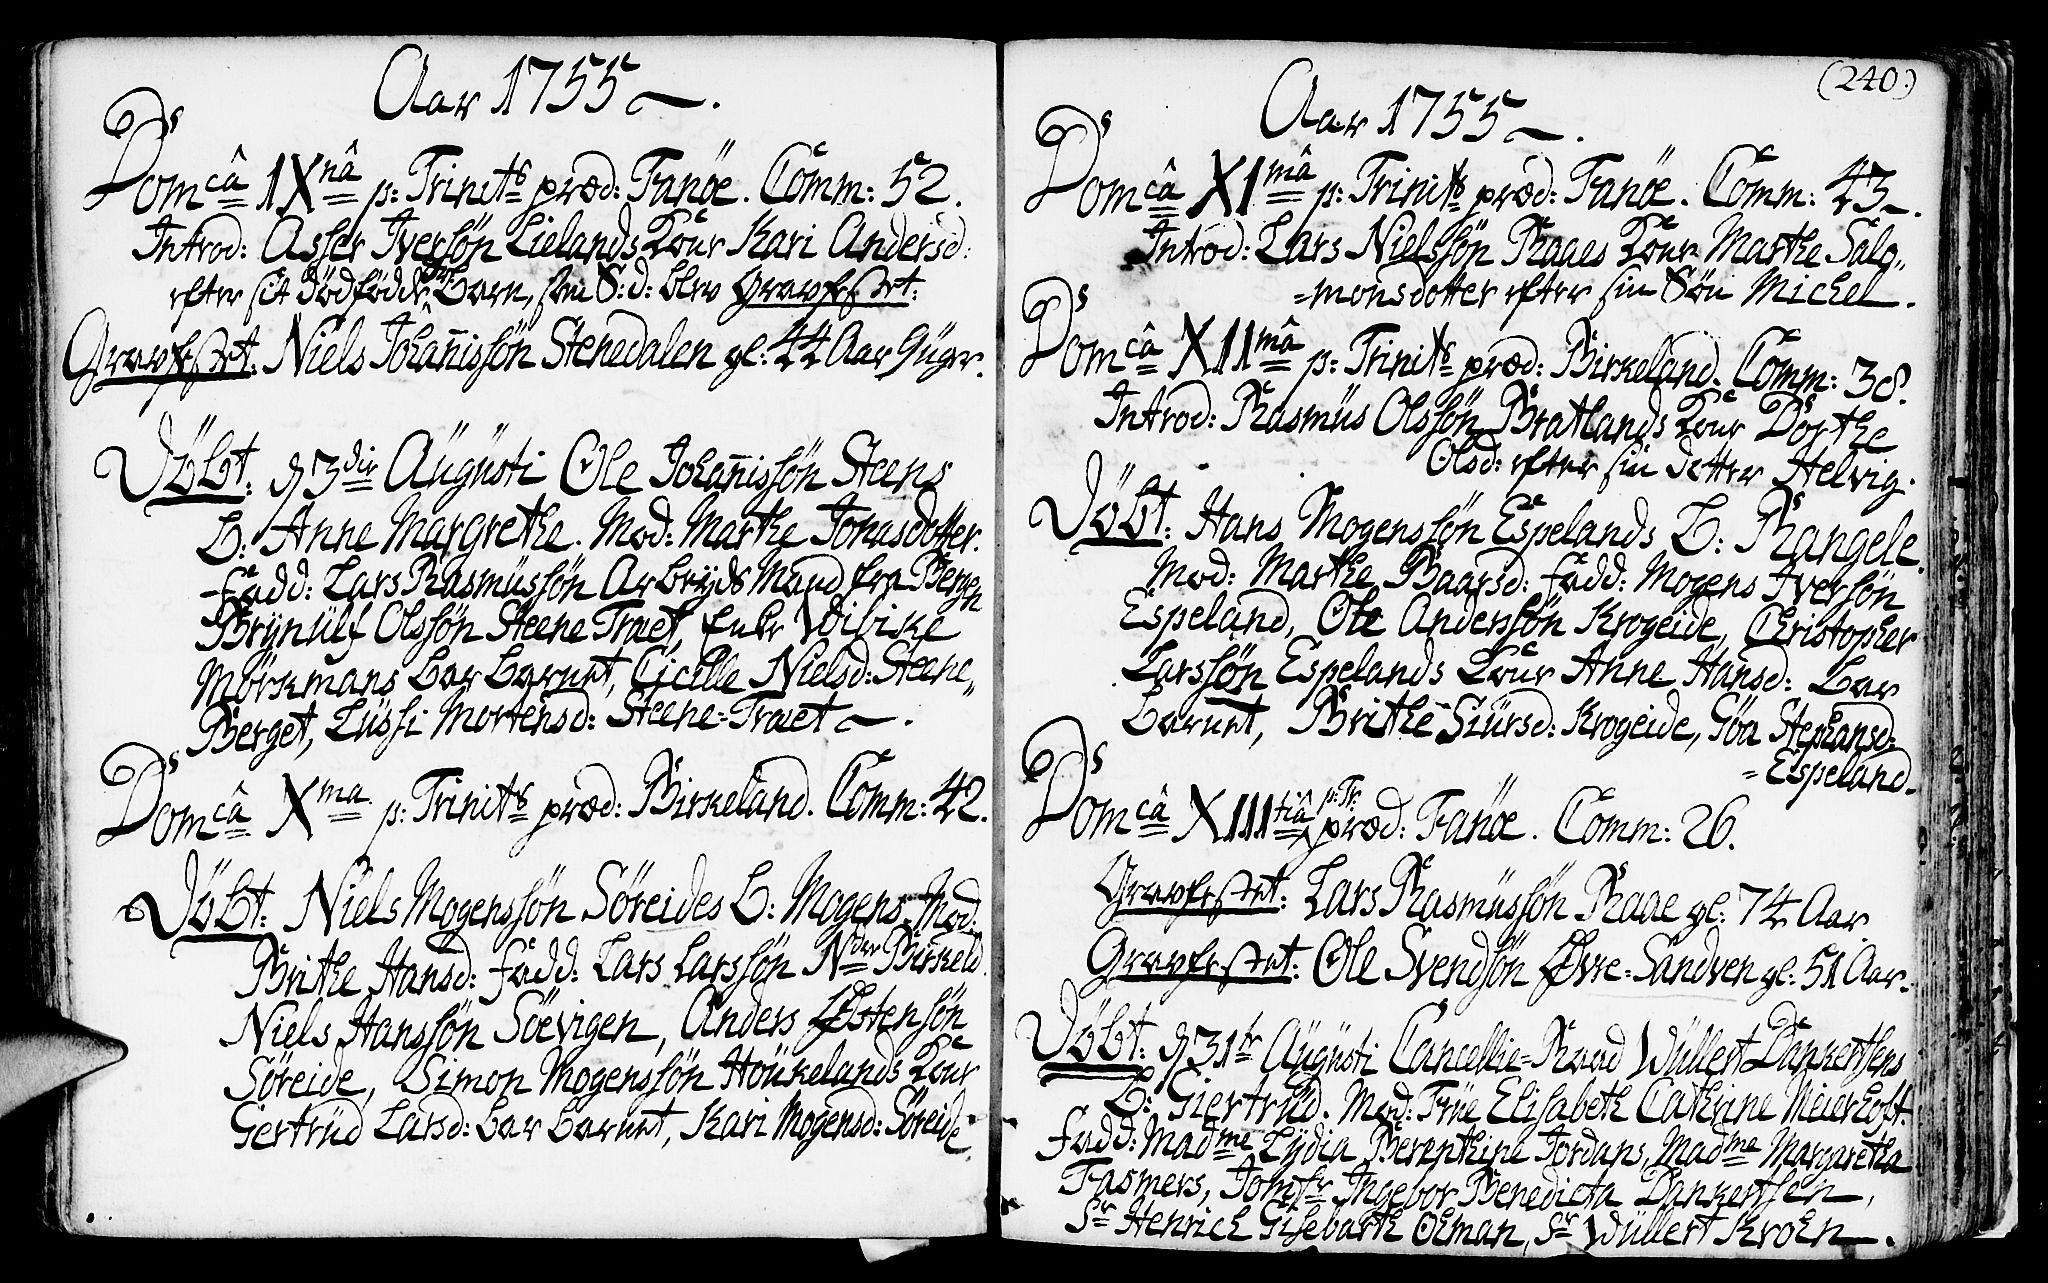 Aar 1755.
Domcâ IXnâ p: Trinits præd: Fanöe. Comm: 52.
Introd: Asser Iversön Lielands Kone Kari Andersd:
efter sit dödfödde Barn, som S: d: blev Gravfæstet:
Gravfæstet: Niels Johan̄issön Stenedalen gl: 44 Aar 9 Uger.
Döbt: d 3die Augusti Ole Johan̄issön Steens
B: Anne Margrethe. Mod: Marthe Jonasdotter.
Fadd: Lars Rasmussön Arbeyds Mand fra Bergen
Brynülf Olssön Steene Træet, Enke Wibicke
Mörkmans bar barnet, Cicelle Nielsd: Steene-
Berget, Lussi Mortensd: Steene-Træet.
Domcâ Xma p: Trinits præd: Birkeland. Comm: 42.
Döbt: Niels Mogenssön Söreides B: Mogens. Mod:
Brithe Hansd: Fadd: Lars Larssön Nder Birkeld.
Niels Hanssön Söevigen, Anders Östensön
Söreide, Simon Mogenssön Houkelands Kone
Gertrüd Larsd: bar barnet, Kari Mogensd: Söreide
(240.)
Aar 1755.
Domcâ XImâ p: Trinits præd: Fanöe. Comm: 43.
Introd: Lars Nielssön Raaes Kone Marthe Salo-
=monsdotter efter sin Sön Michel.
Domcâ XIImâ p: Trinits præd: Birkeland. Comm: 38.
Introd: Rasmüs Olssön Bratlands Kone Dorthe
Olsd: efter sin dotter Helvig.
Döbt: Hans Mogenssön Espelands B: Rangele.
Mod: Marthe Baarsd: Fadd: Mogens Iversön
Espeland, Ole Anderssön Krogeide, Christopher
Larssön Espelands Kone Anne Hansd: bar
barnet, Brithe Siürsd: Krogeide, Göa Stephansd:
=Espeland.
Domcâ XIIItiâ p: Tr: præd: Fanöe. Comm: 26.
Gravfæstet: Lars Rasmüssön Raae gl: 74 Aar
Gravfæstet: Ole Svendsön Övre-Sandven gl: 51 Aar.
Döbt: d 31te Augusti Cancellie-Raad Wüllert Dankertsens
B: Giertrüd. Mod: Frue Elisabeth Cathrine Meierhoft.
Fadd: Madme Lydia Berenthine Jordans, Madme Margaretha
Fasmers, Jomfr Ingebor Benedicta Dankertsen,
Sr Henrich Gisebarth Ohman, Sr Wüllert Kroen.